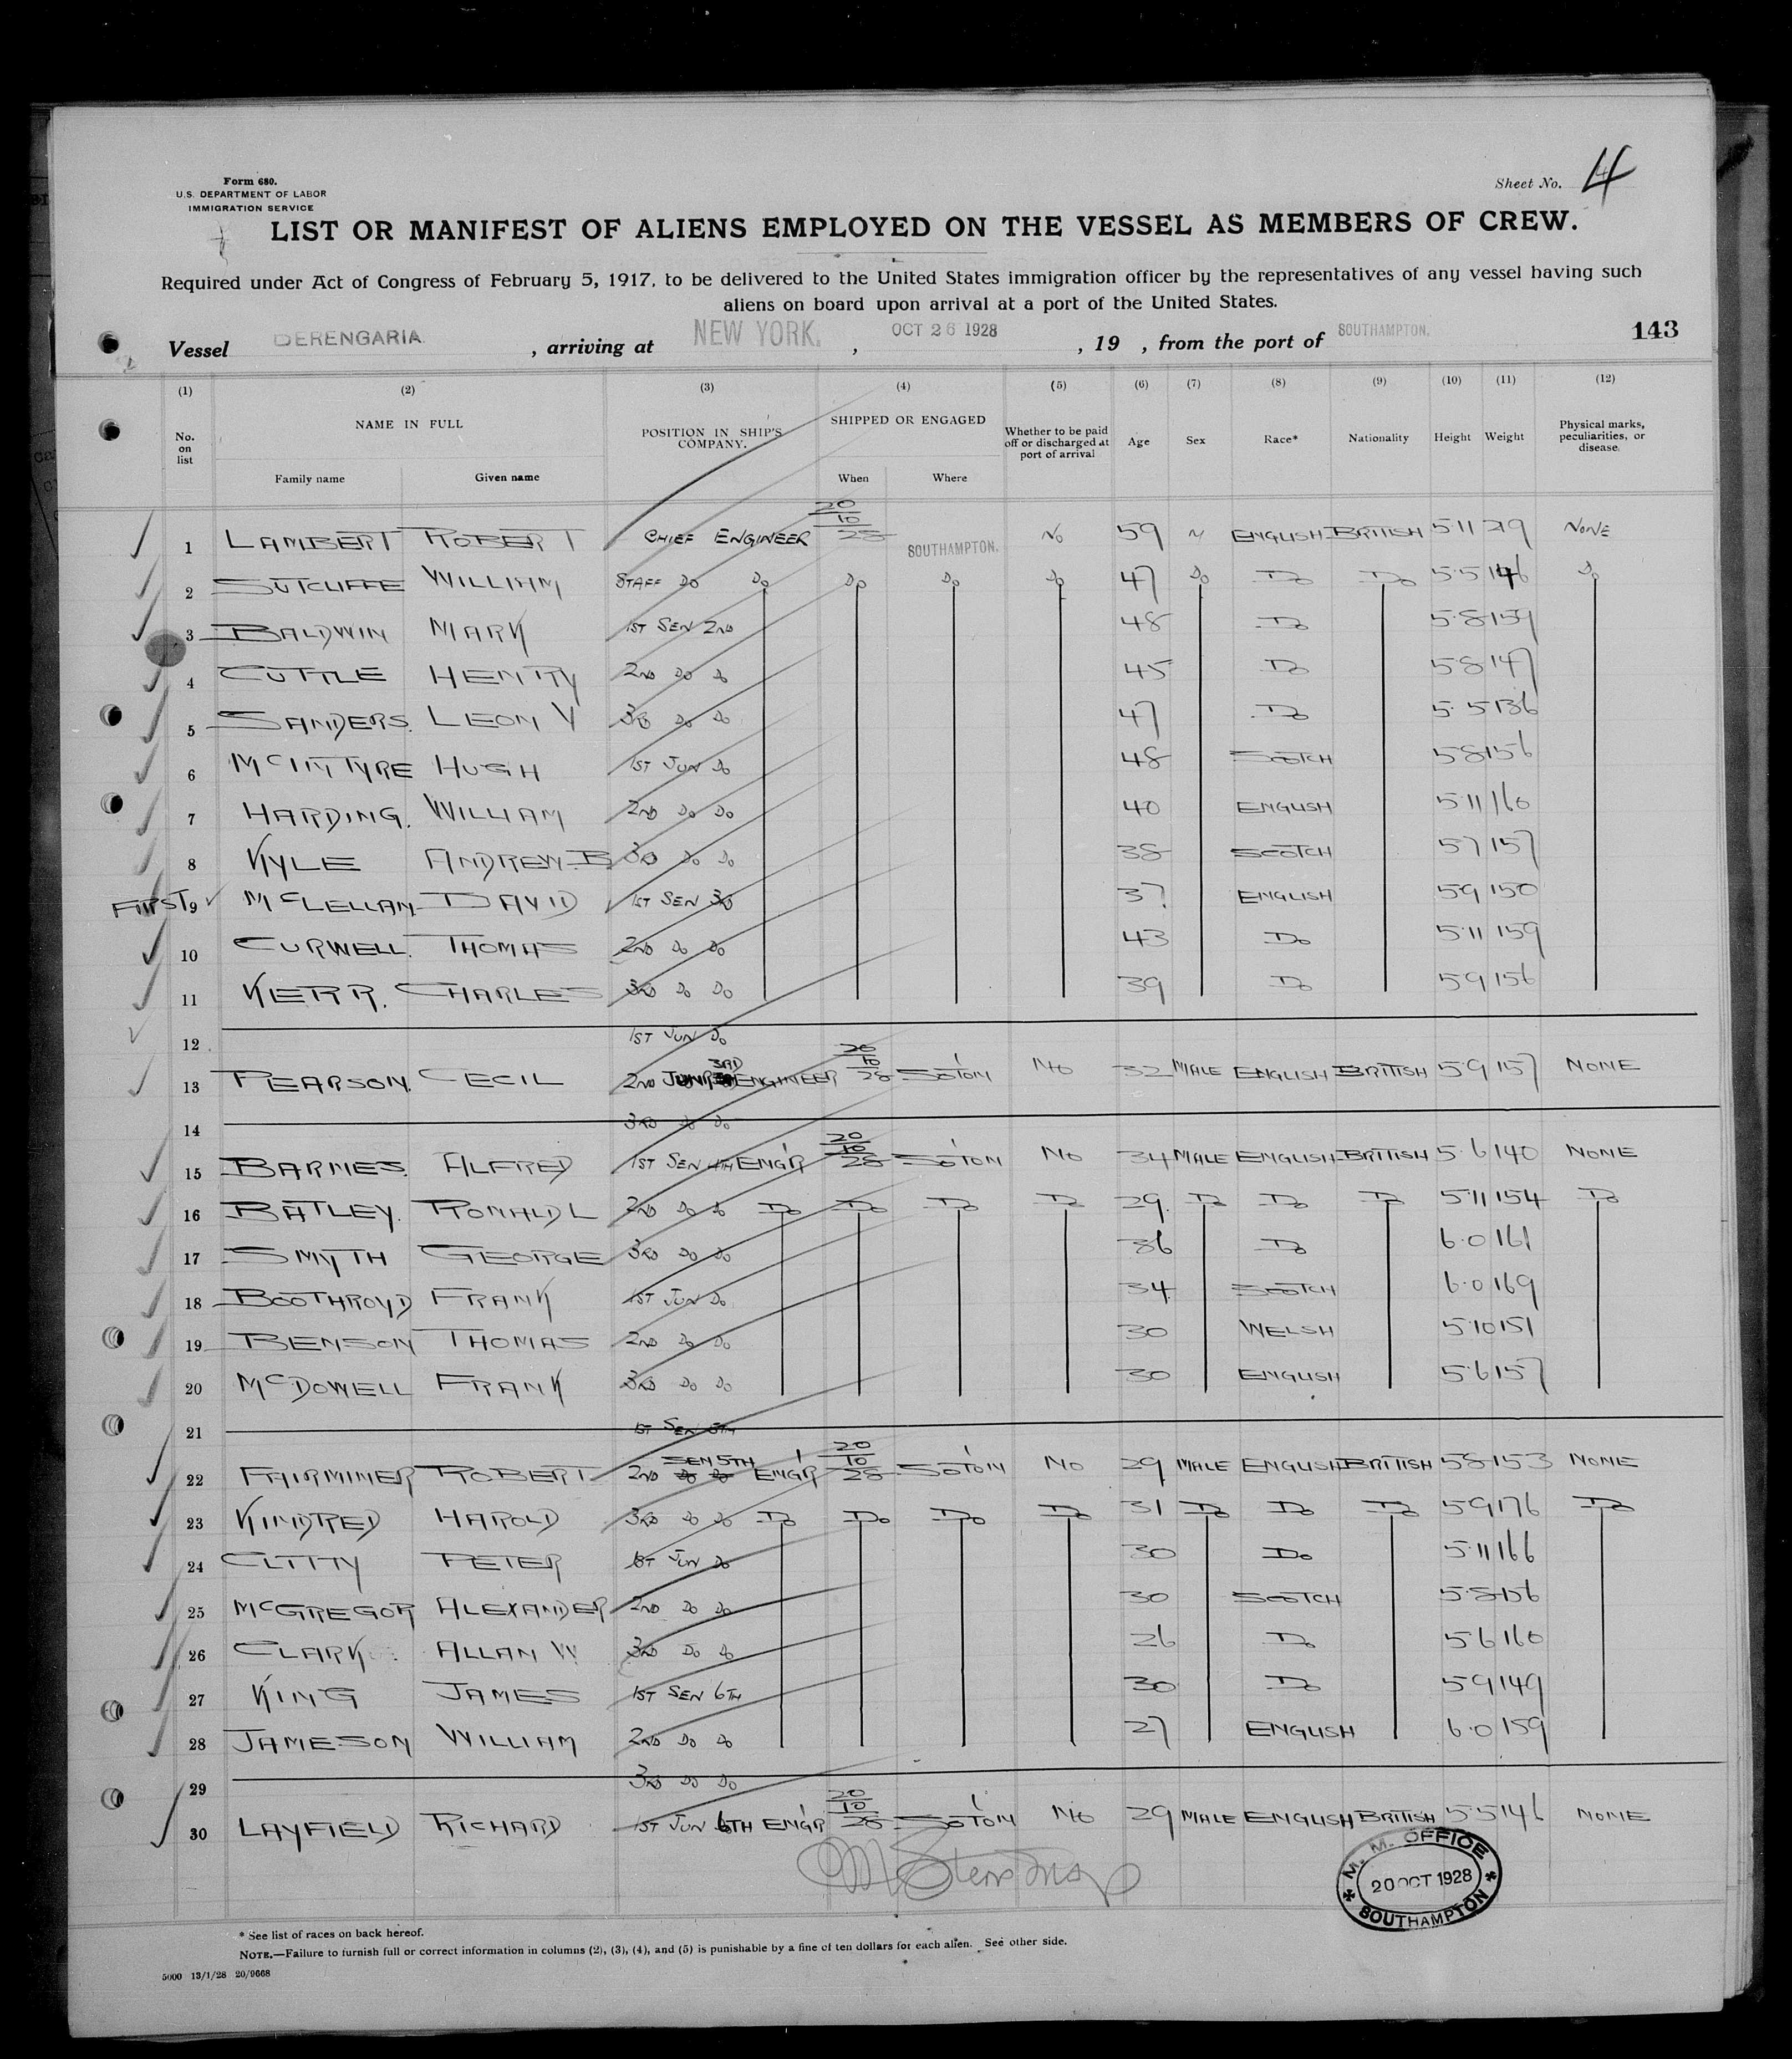 Form 680.
U.S. DEPARTMENT OF LABOR
IMMIGRATION SERVICE
Sheet No. 4
LIST OR MANIFEST OF ALIENS EMPLOYED ON THE VESSEL AS MEMBERS OF CREW.
Required under Act of Congress of February 5, 1917, to be delivered to the United States immigration officer by the representatives of any vessel having such
aliens on board upon arrival at a port of the United States.
Vessel BERENGARIA , arriving at NEW YORK. , OCT 26 1928 , 19 , from the port of SOUTHAMPTON. 143
(1) (2) (3) (4) (5) (6) (7) (8) (9) (10) (11) (12)
No. on list NAME IN FULL POSITION IN SHIP'S COMPANY. SHIPPED OR ENGAGED Whether to be paid off or discharged at port of arrival Age Sex Race* Nationality Height Weight Physical marks, peculiarities, or disease.
Family name Given name When Where
1 LAMBERT ROBERT CHIEF ENGINEER 20/10/28 SOUTHAMPTON. NO 59 M ENGLISH BRITISH 5 11 219 NONE
2 SUTCLIFFE WILLIAM STAFF DO DO DO DO DO 47 DO DO DO 5·5 146 DO
3 BALDWIN MARK 1ST SEN 2ND 48 DO 5·8 159
4 CUTTLE HENRY 2ND DO DO 45 DO 5 8 147
5 SANDERS. LEON V 3RD DO DO 47 DO 5·5 136
6 MCINTYRE HUGH 1ST JUN DO 48 SCOTCH 5 8 156
7 HARDING. WILLIAM 2ND DO DO 40 ENGLISH 5 11 160
8 KYLE ANDREW.B 3RD DO DO 38 SCOTCH 5 7 157
FIRST 9 MCLELLAN DAVID 1ST SEN 3RD 37 ENGLISH 5 9 150
10 CURWELL. THOMAS 2ND DO DO 43 DO 5·11 159
11 KERR. CHARLES 3RD DO DO 39 DO 5 9 156
12 1ST JUN DO
13 PEARSON. CECIL 2ND JUNR 3RD ENGINEER 20/10/28 SO'TON NO 32 MALE ENGLISH BRITISH 5 9 157 NONE
14 3RD DO DO
15 BARNES. ALFRED 1ST SEN 4TH ENG'R 20/10/28 SO'TON NO 34 MALE ENGLISH BRITISH 5·6 140 NONE
16 BATLEY. RONALD L 2ND DO DO DO DO DO DO 29. DO DO DO 5·11 154 DO
17 SMYTH GEORGE 3RD DO DO 36 DO 6·0 161
18 BOOTHROYD FRANK 1ST JUN DO 34 SCOTCH 6·0 169
19 BENSON THOMAS 2ND DO DO 30 WELSH 5·10 151
20 MCDOWELL FRANK 3RD DO DO 30 ENGLISH 5·6 157
21 1ST SEN 5TH
22 FAIRMINER ROBERT 2ND SEN 5TH ENG'R 20/10/28 SO'TON NO 29 MALE ENGLISH BRITISH 5 8 153 NONE
23 KINDRED HAROLD 3RD DO DO DO DO DO DO 31 DO DO DO 5 9 176 DO
24 PETER 1ST JUN DO 30 DO 5·11 166
25 MCGREGOR ALEXANDER 2ND DO DO 30 SCOTCH 5·8 156
26 CLARK ALLAN W 3RD DO DO 26 DO 5 6 160
27 KING JAMES 1ST SEN 6TH 30 DO 5 9 149
28 JAMESON WILLIAM 2ND DO DO 27 ENGLISH 6·0 159
29 3RD DO DO
30 LAYFIELD RICHARD 1ST JUN 6TH ENG'R 20/10/28 SO'TON NO 29 MALE ENGLISH BRITISH 5·5 146 NONE
M. M. OFFICE
20 OCT 1928
SOUTHAMPTON
* See list of races on back hereof.
NOTE.—Failure to furnish full or correct information in columns (2), (3), (4), and (5) is punishable by a fine of ten dollars for each alien. See other side.
5000 13/1/28 20/9668